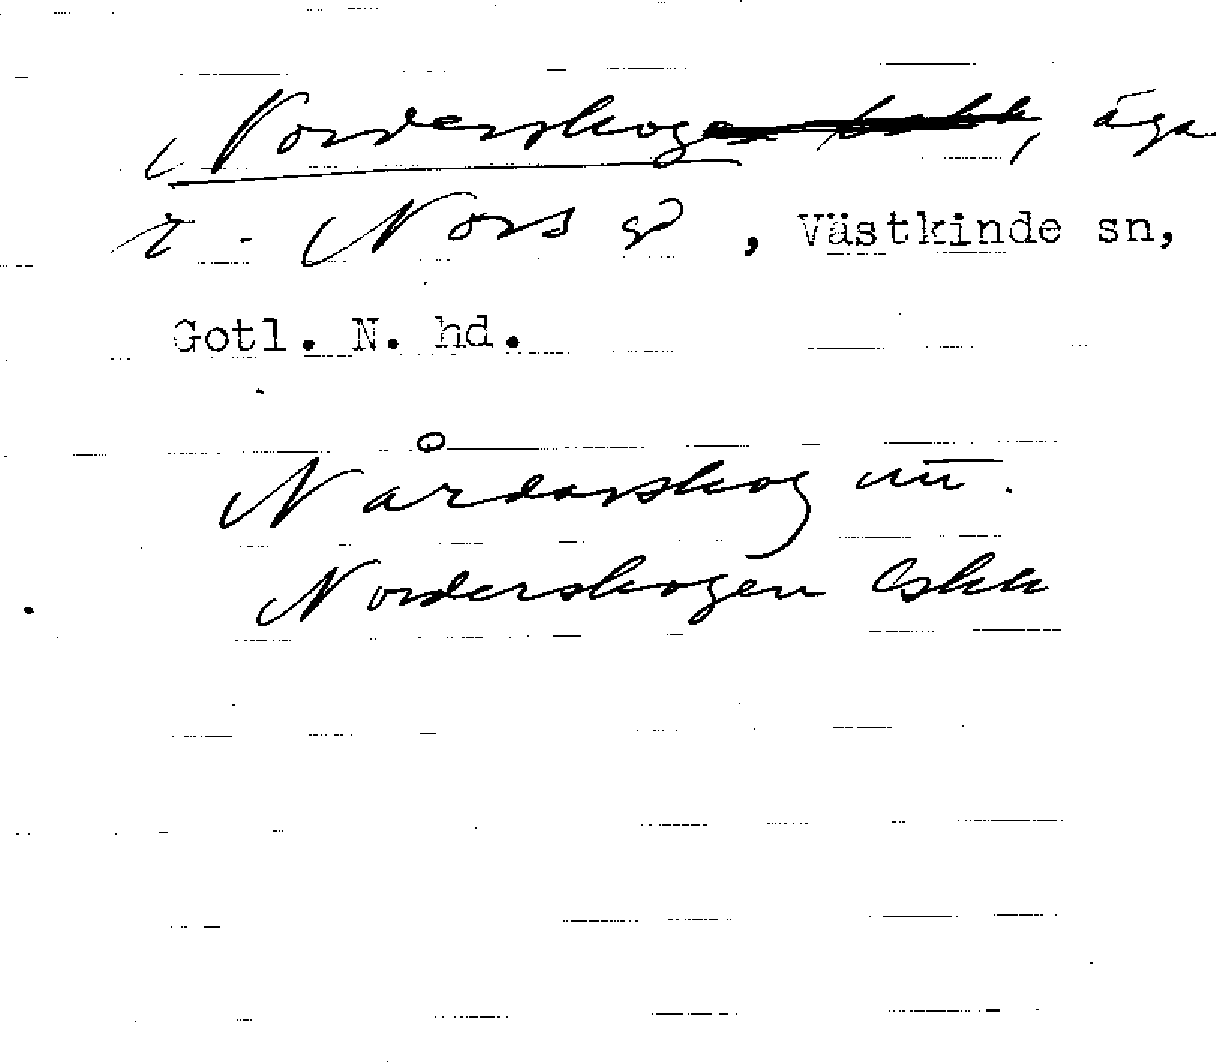 Norderskog, äga
t. Nors gd, Västkinde sn,
Gotl. N. hd.
Nårdarskog uu.
Norderskogen Eskk